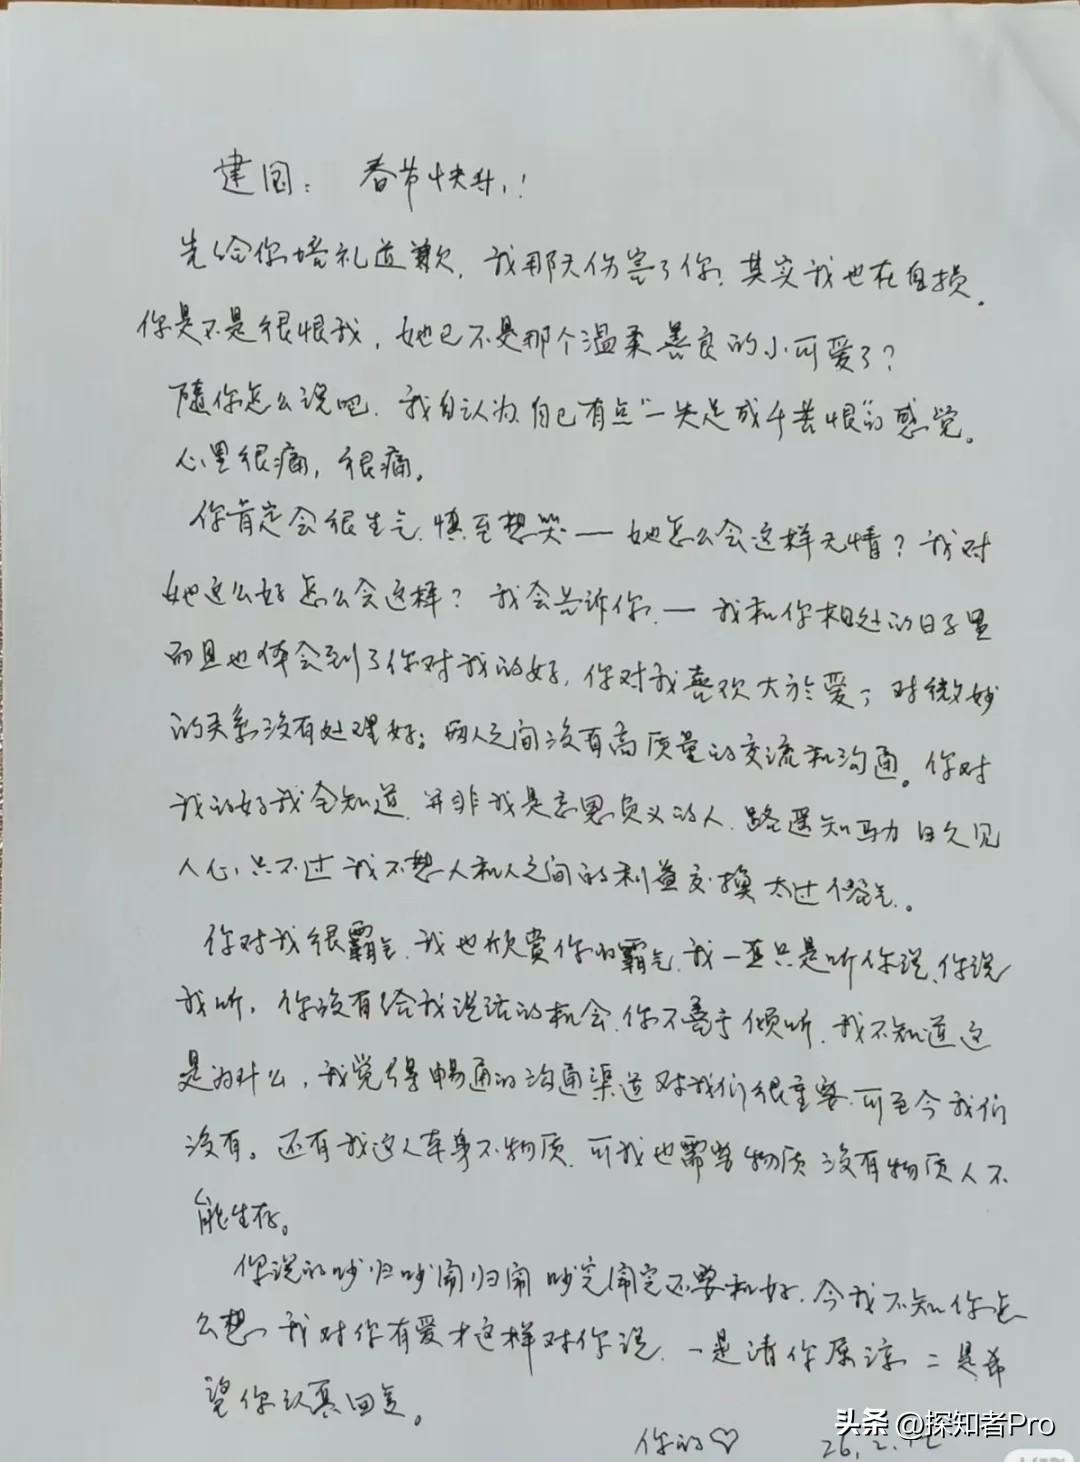 建国：春节快乐！
先给你培礼道歉，我那天伤害了你，其实我也在自损。
你是不是很恨我，她已不是那个温柔善良的小可爱了？
随你怎么说吧，我自认为自己有点“一失足成千苦恨”的感觉。
心里很痛，很痛。
你肯定会很生气，慎至想哭——她怎么会这样无情？我对
她这么好怎么会这样？我会告诉你，—我和你相处的日子里
而且也体会到了你对我的好，你对我喜欢大於爱，对微妙
的关系没有处理好；两人之间没有高质量的交流和沟通。你对
我的好我全知道，并非我是忘恩负义的人，路遥知马力日久见
人心，只不过我不想人和人之间的利益交换太过俗气。
你对我很霸气，我也欣赏你的霸气，我一直只是听你说、你说
我听，你没有给我说话的机会，你不善于倾听，我不知道这
是为什么，我觉得畅通的沟通渠道对我们很重要，可至今我们
没有。还有我这人本身不物质，可我也需要物质没有物质人不
能生存。
你说的吵归吵闹归闹吵完闹完还要和好，今我不知你怎
么想，我对你有爱才这样对你说，一是请你原谅二是希
望你认真回复。
你的♡ 26.2.
头条 @探知者Pro